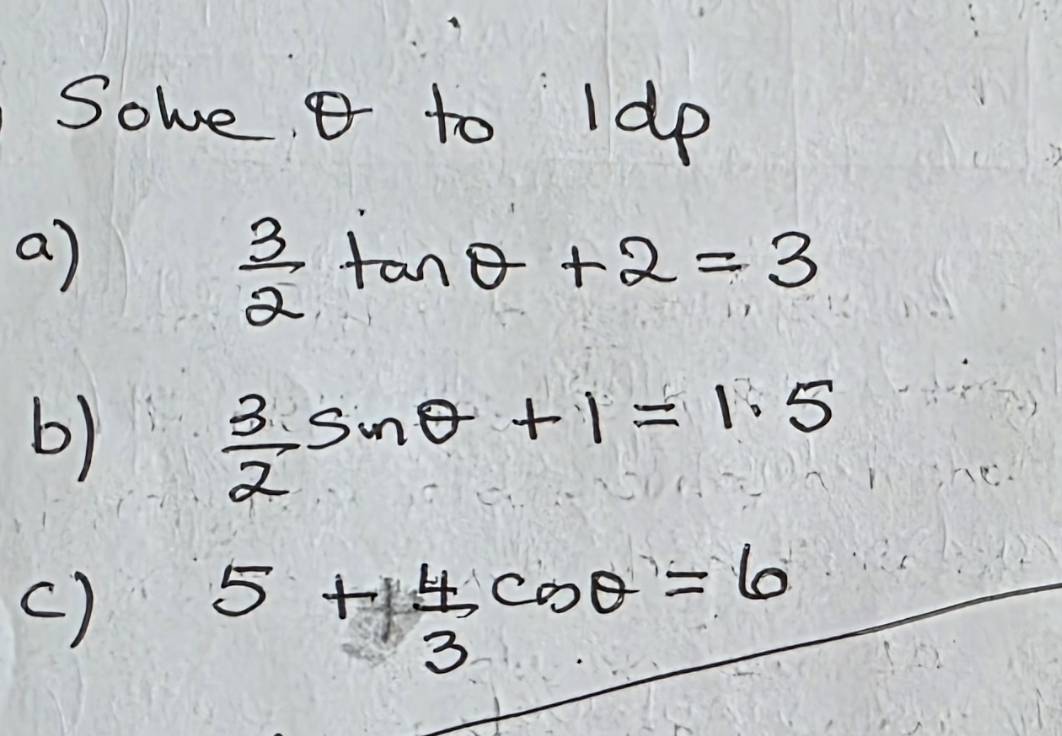 Solve θ to 1dp
a) 3/2 tan θ + 2 = 3
b) 3/2 sin θ + 1 = 1.5
c) 5 + 4/3 cos θ = 6